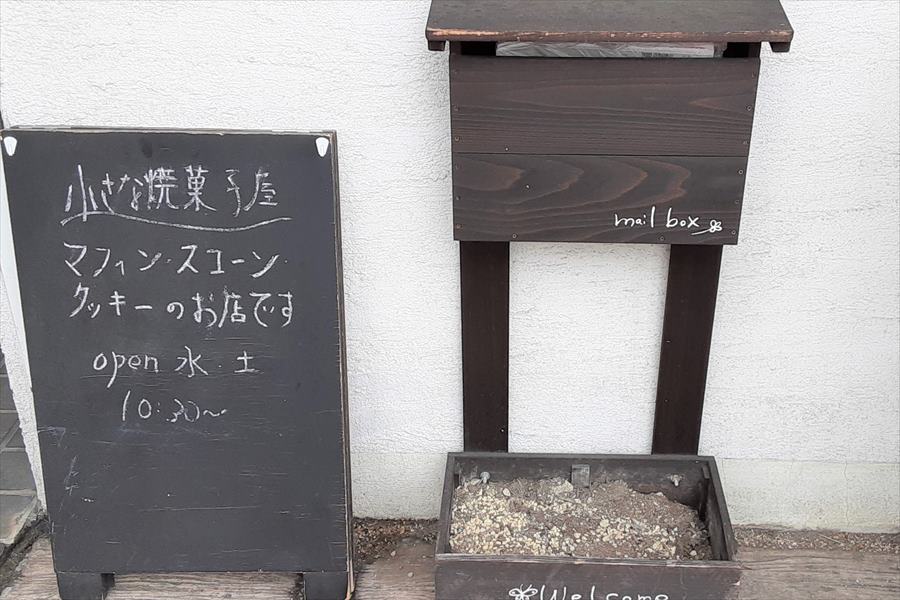 小さな焼菓子屋
マフィン・スコーン・
クッキーのお店です
open 水・土
10:30～
mail box
Welcome